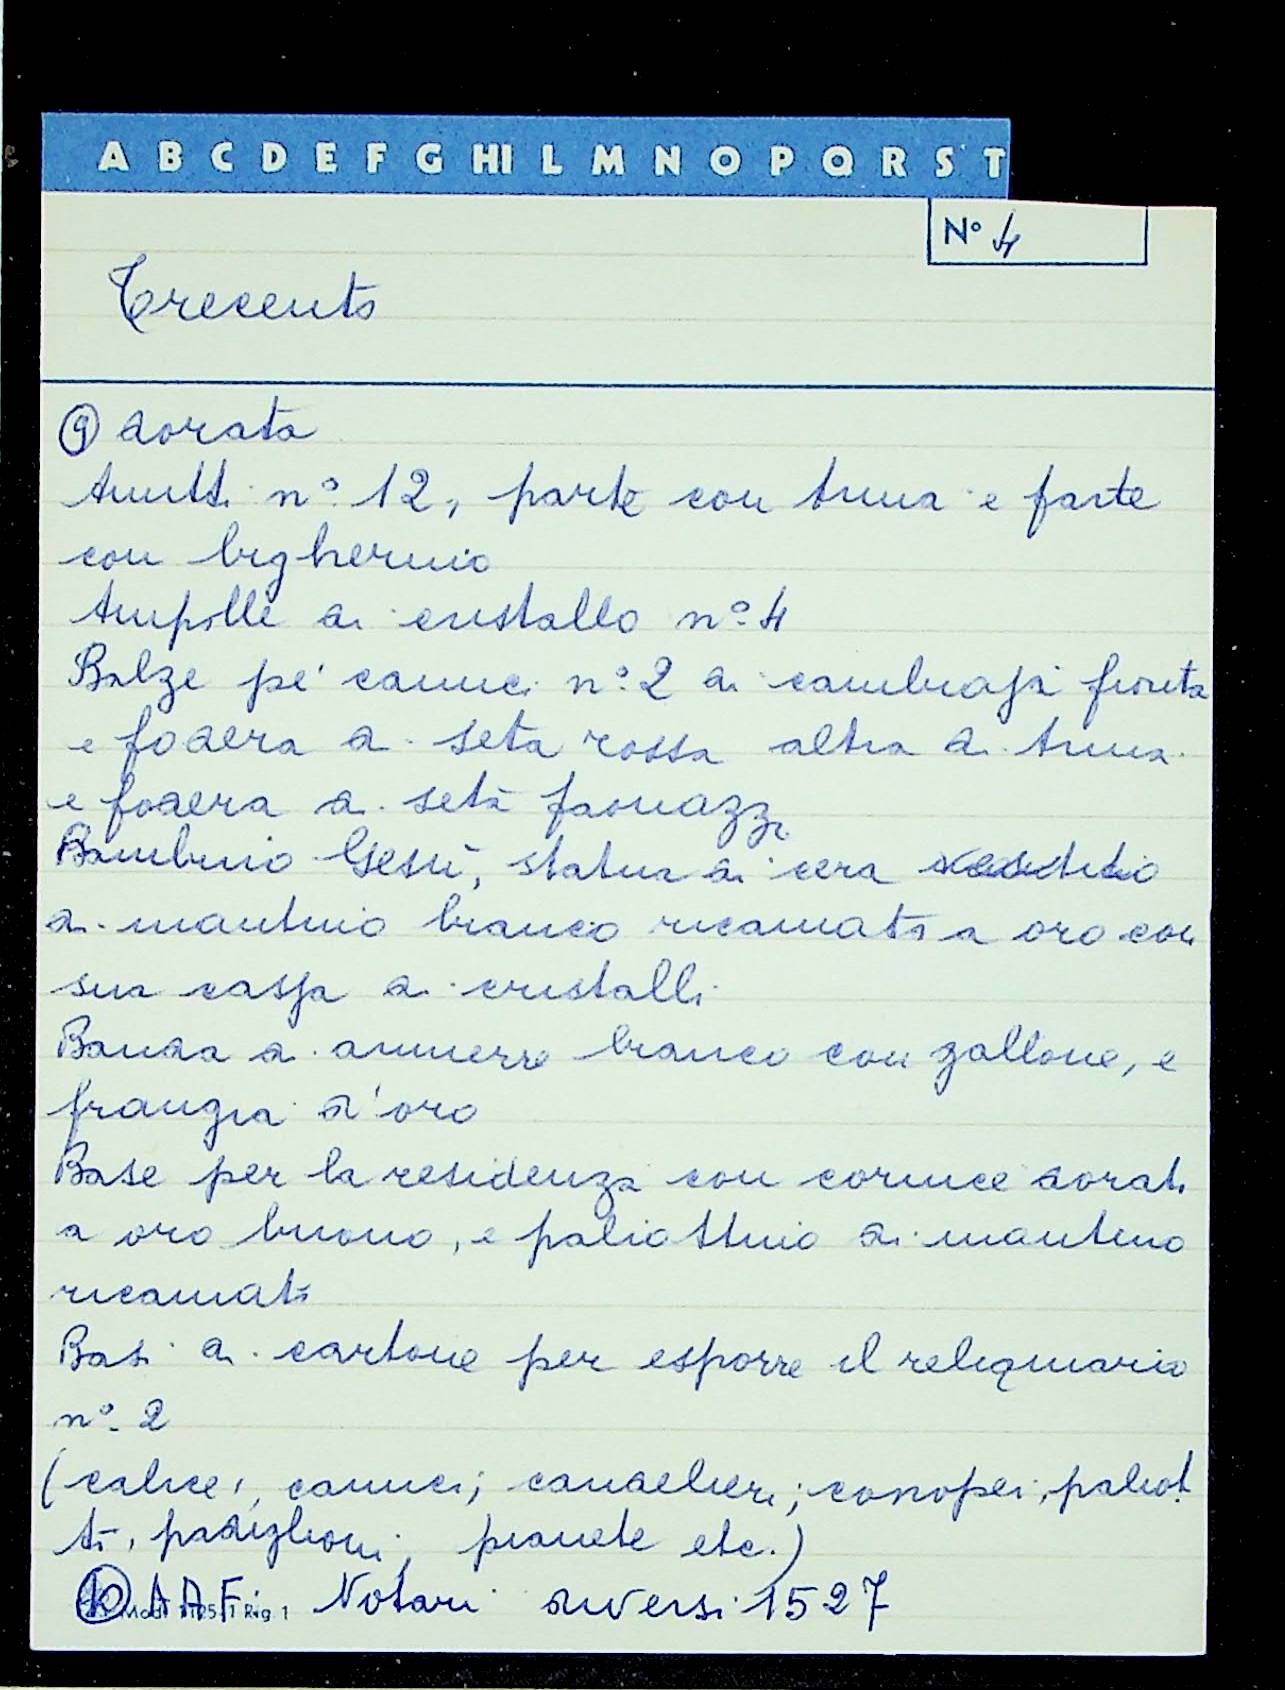 A B C D E F G HI L M N O P Q R S T
N° 4
Trecento
9 dorata
Amitti n° 12, parte con trina e parte
con bigherino
Ampolle di cristallo n° 4
Balze pe' camici n° 2 di cambraja fiorita
e fodera di seta rossa altra di trina
e fodera di seta paonazza
Bambino Gesù, statua di cera vestito
di mantino bianco ricamato a oro con
sua cassa di cristalli
Banda di amuerre bianco con gallone, e
frangia d'oro
Base per la residenza con cornice dorata
a oro buono, e paliottino di mantino
ricamato
Basi di cartone per esporre il reliquiario
n° 2
(calici, camici; candelieri; conopei; paliot
ti, padiglioni, pianete etc.)
A A F. Notari diversi 1527